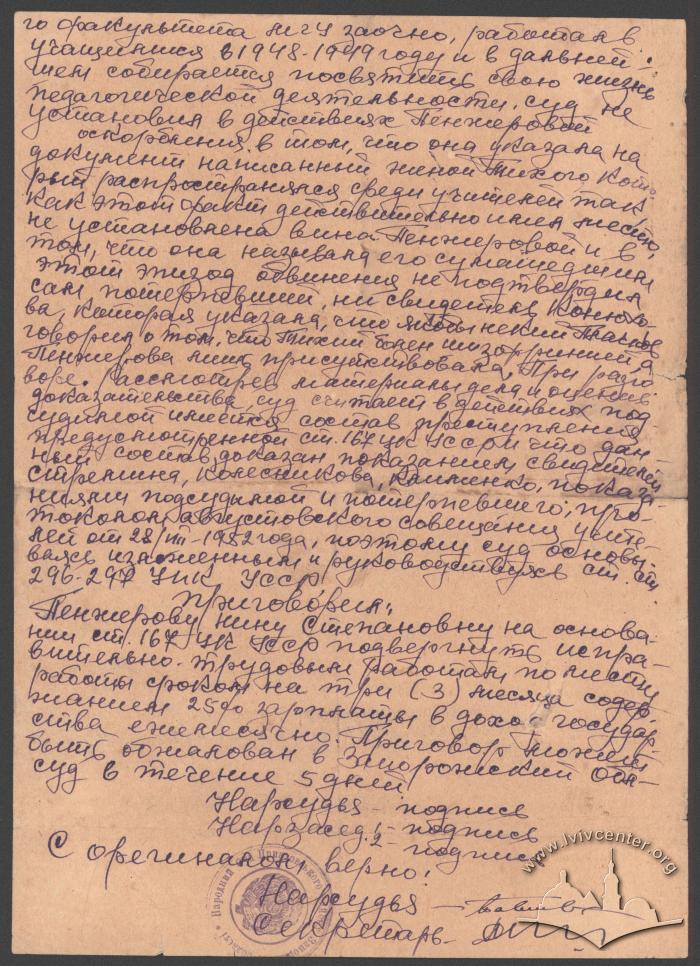 го факультета МГУ заочно, работал в
учащимися в 1948-1949 году и в дальней-
шем собирается посвятить свою жизнь
педагогической деятельности, суд не
установил в действиях Пенжеровой
оскорбления в том, что она указала на
документ написанный женой Тихого кото-
рый распространялся среди учителей так
как этот факт действительно имел место,
не установлена вина Пенжеровой и в
том, что она называла его сумасшедшим
этот эпизод обвинения не подтвердил
сам потерпевший, ни свидетель
ва, которая указала, что якобы некий
говорил о том, что Тихий болен шизофренией, а
Пенжерова лишь присутствовала при разго
воре. Рассмотрев материалы дела и оценив
доказательства, суд считает в действиях под
судимой имеется состав преступления
предусмотренной ст. 167 УК УССР и что дан-
ный состав доказан показанием свидетелей
Стремина, Колесникова, Клименко, показа-
ниями подсудимой и потерпевшего, про-
токолом августовского совещания учите-
лей от 28/VIII-1952 года, поэтому суд основы-
ваясь изложенным и руководствуясь ст. ст
296-297 УПК УССР
Приговорил:
Пенжерову Нину Степановну на основа-
нии ст. 167 УК УССР подвергнуть испра-
вительно-трудовым работам по месту
работы сроком на три (3) месяца с удер-
жанием 25% зарплаты в доход государ-
ства ежемесячно. Приговор может
быть обжалован в Запорожский обл-
суд в течение 5 дней
Нарсудья - подпись
Нарзасед. 1 - подпись
2 - подпись
С оригиналом верно!
Нарсудья
Секретарь
Народний
www.lvivcenter.org